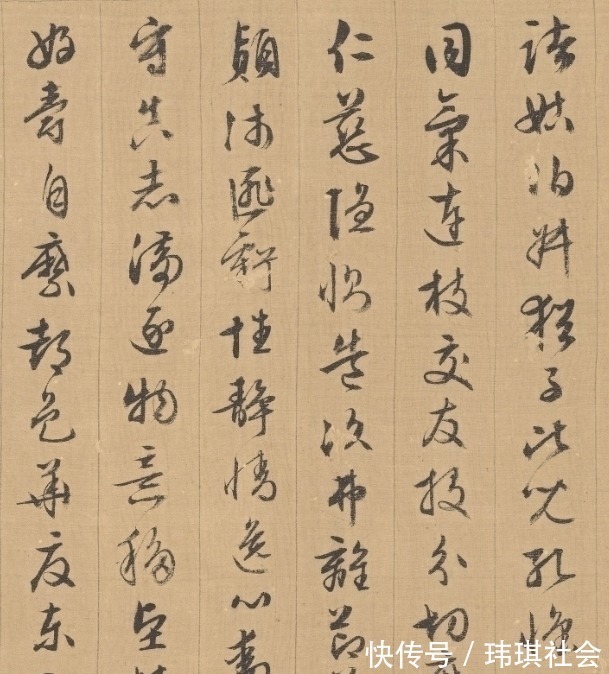 諸姑伯叔猶子比兒孔懷
同氣連枝交友投分切
仁慈隱惻造次弗離節
顛沛匪虧性靜情逸心動
守真志滿逐物意移堅
好爵自縻都邑華夏東
快传号 / 玮琪社会